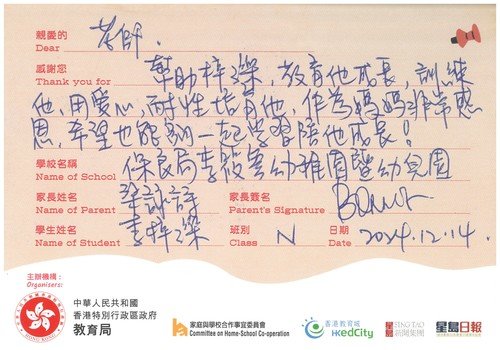 親愛的 老師,
Dear
感謝您 幫助梓濼,教育他成長,訓練
Thank you for
他,用愛心,耐性培育他,作為媽媽非常感
恩,希望也能夠一起學習陪他成長!
學校名稱 保良局李筱裳幼稚園暨幼兒園
Name of School
家長姓名 梁詠詩 家長簽名
Name of Parent Parent's Signature
學生姓名 李梓濼 班別 N 日期 2024.12.14.
Name of Student Class Date
主辦機構:
Organisers:
中華人民共和國
香港特別行政區政府
教育局
家庭與學校合作事宜委員會
Committee on Home-School Co-operation
香港教育城
HKedCity
星島新聞集團
SING TAO
星島日報